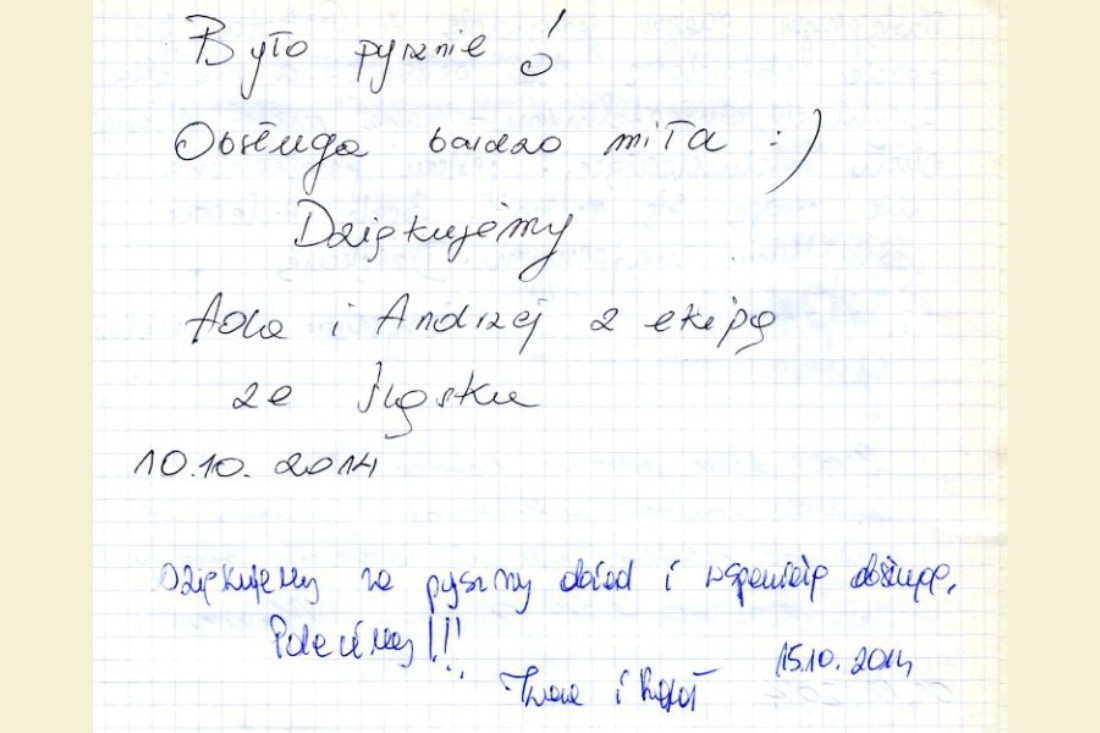 Było pysznie!
Obsługa bardzo miła :)
Dziękujemy
Ada i Andrzej z ekipą
ze Śląska
10.10.2014
Dziękujemy za pyszny obiad i wspaniałą obsługę.
Polecamy!!!
15.10.2014
i Rafał